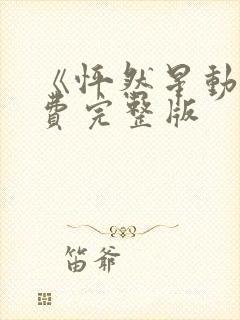 《怦然星动
费完整版
笛爷